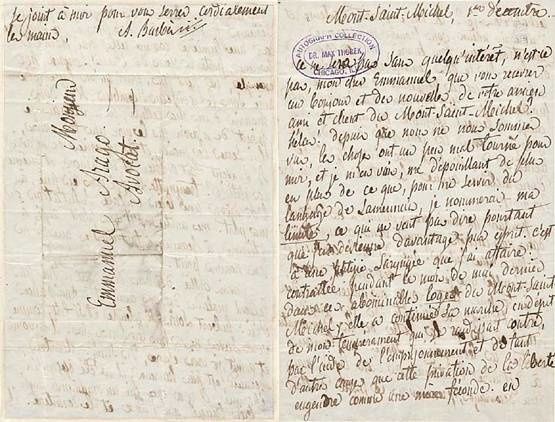 se joint à moi pour vous serrer cordialement
la main.
A. Barbès
Monsieur
Emmanuel Arago
Avocat
Mont-Saint-Michel, 1er décembre
AUTOGRAPH COLLECTION
DR. MAX THOREK
CHICAGO,
Ce ne sera pas sans quelqu'intérêt, n'est-ce
pas, mon cher Emmanuel que vous recevrez
un bonjour et des nouvelles de votre ancien
ami et client du Mont-Saint-Michel.
Hélas! depuis que nous ne nous sommes
vus, les choses ont un peu mal tourné pour
moi, et je m'en vais, me dépouillant de plus
en plus de ce que, pour me servir du
langage de je nommerai ma
ce qui ne veut pas dire pourtant
que je devienne davantage pur esprit. c'est
à une que j'ai
contractée pendant le mois de mai dernier
dans les abominables loges du Mont-Saint
Michel; elle a continué sa marche, en dépit
de mon tempérament qui
par l'aide de l'emprisonnement et de tant
d'autres causes que cette privation de la liberté
engendre comme une mère féconde. en